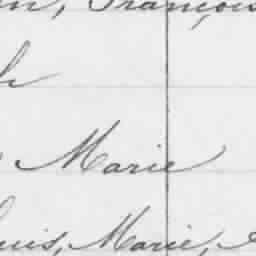 François
Marie
Louis, Marie,